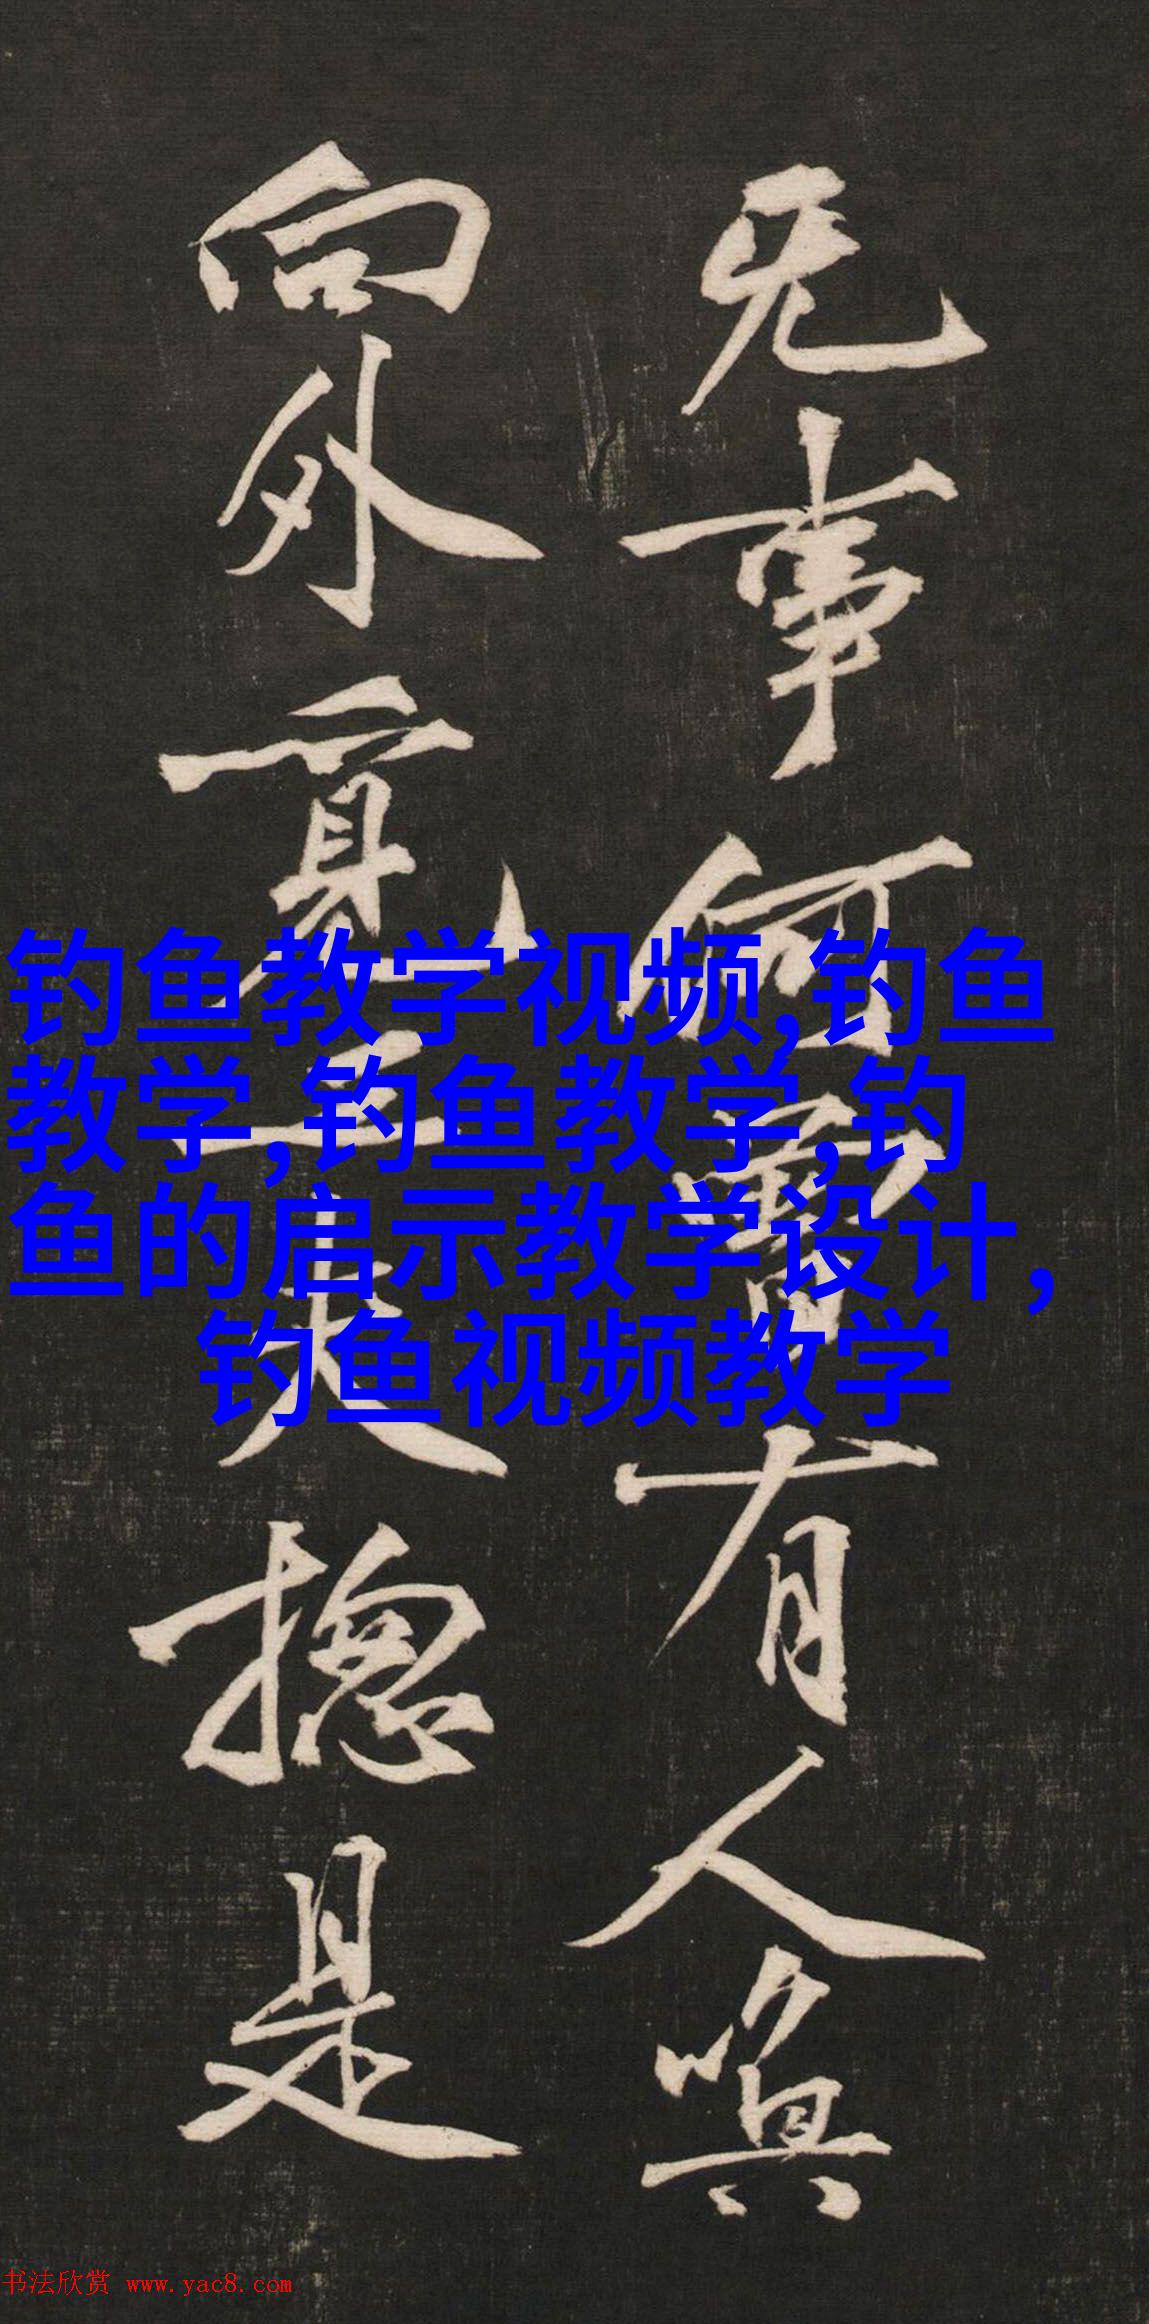 无事何曾有人唤
向外寛工夫揔是
钓鱼教学视频,钓鱼
教学,钓鱼教学,钓
鱼的启示教学设计,
钓鱼视频教学
书法欣赏 www.yac8.com